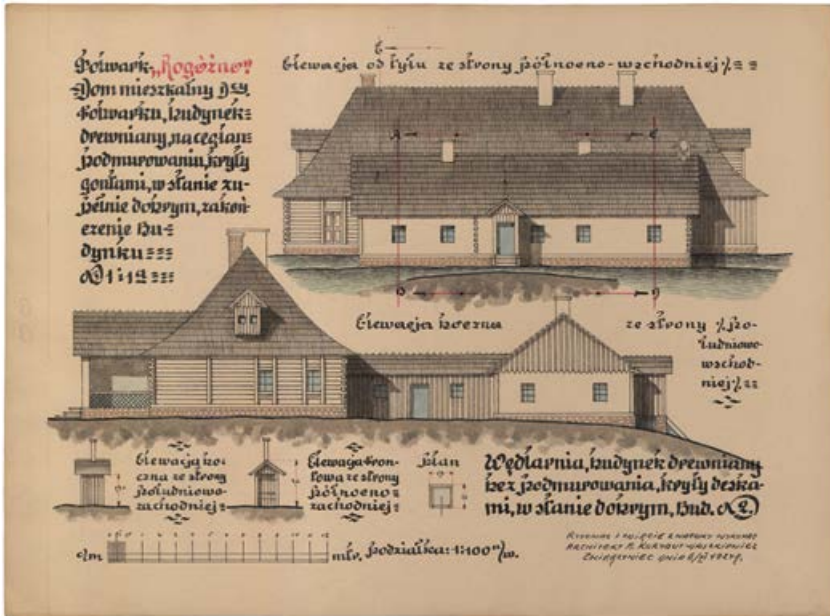 Folwark „Rogóźno”
Dom mieszkalny
folwarku, budynek
drewniany, na ceglan=
podmurowaniu, kryty
gontami, w stanie zu=
pełnie dobrym, zakoń=
czenie Bu=
dynku
1:1
Elewacja od tyłu ze strony północno-wschodniej
Elewacja boczna
ze strony po=
łudniowo
wschod=
niej
Elewacja bo=
czna ze strony
południowo=
zachodniej
Elewacja fron=
towa ze strony
północno=
zachodniej
plan
Wędlarnia, budynek drewniany
bez podmurowania, kryty deska=
mi, w stanie dobrym, Bud. 2.
c/m
1 2 3 4 5 6 7 8 9 10 11 12
mtr. podziałka: 1:100
Rysował i zdjęcie z natury wykonał
Architekt